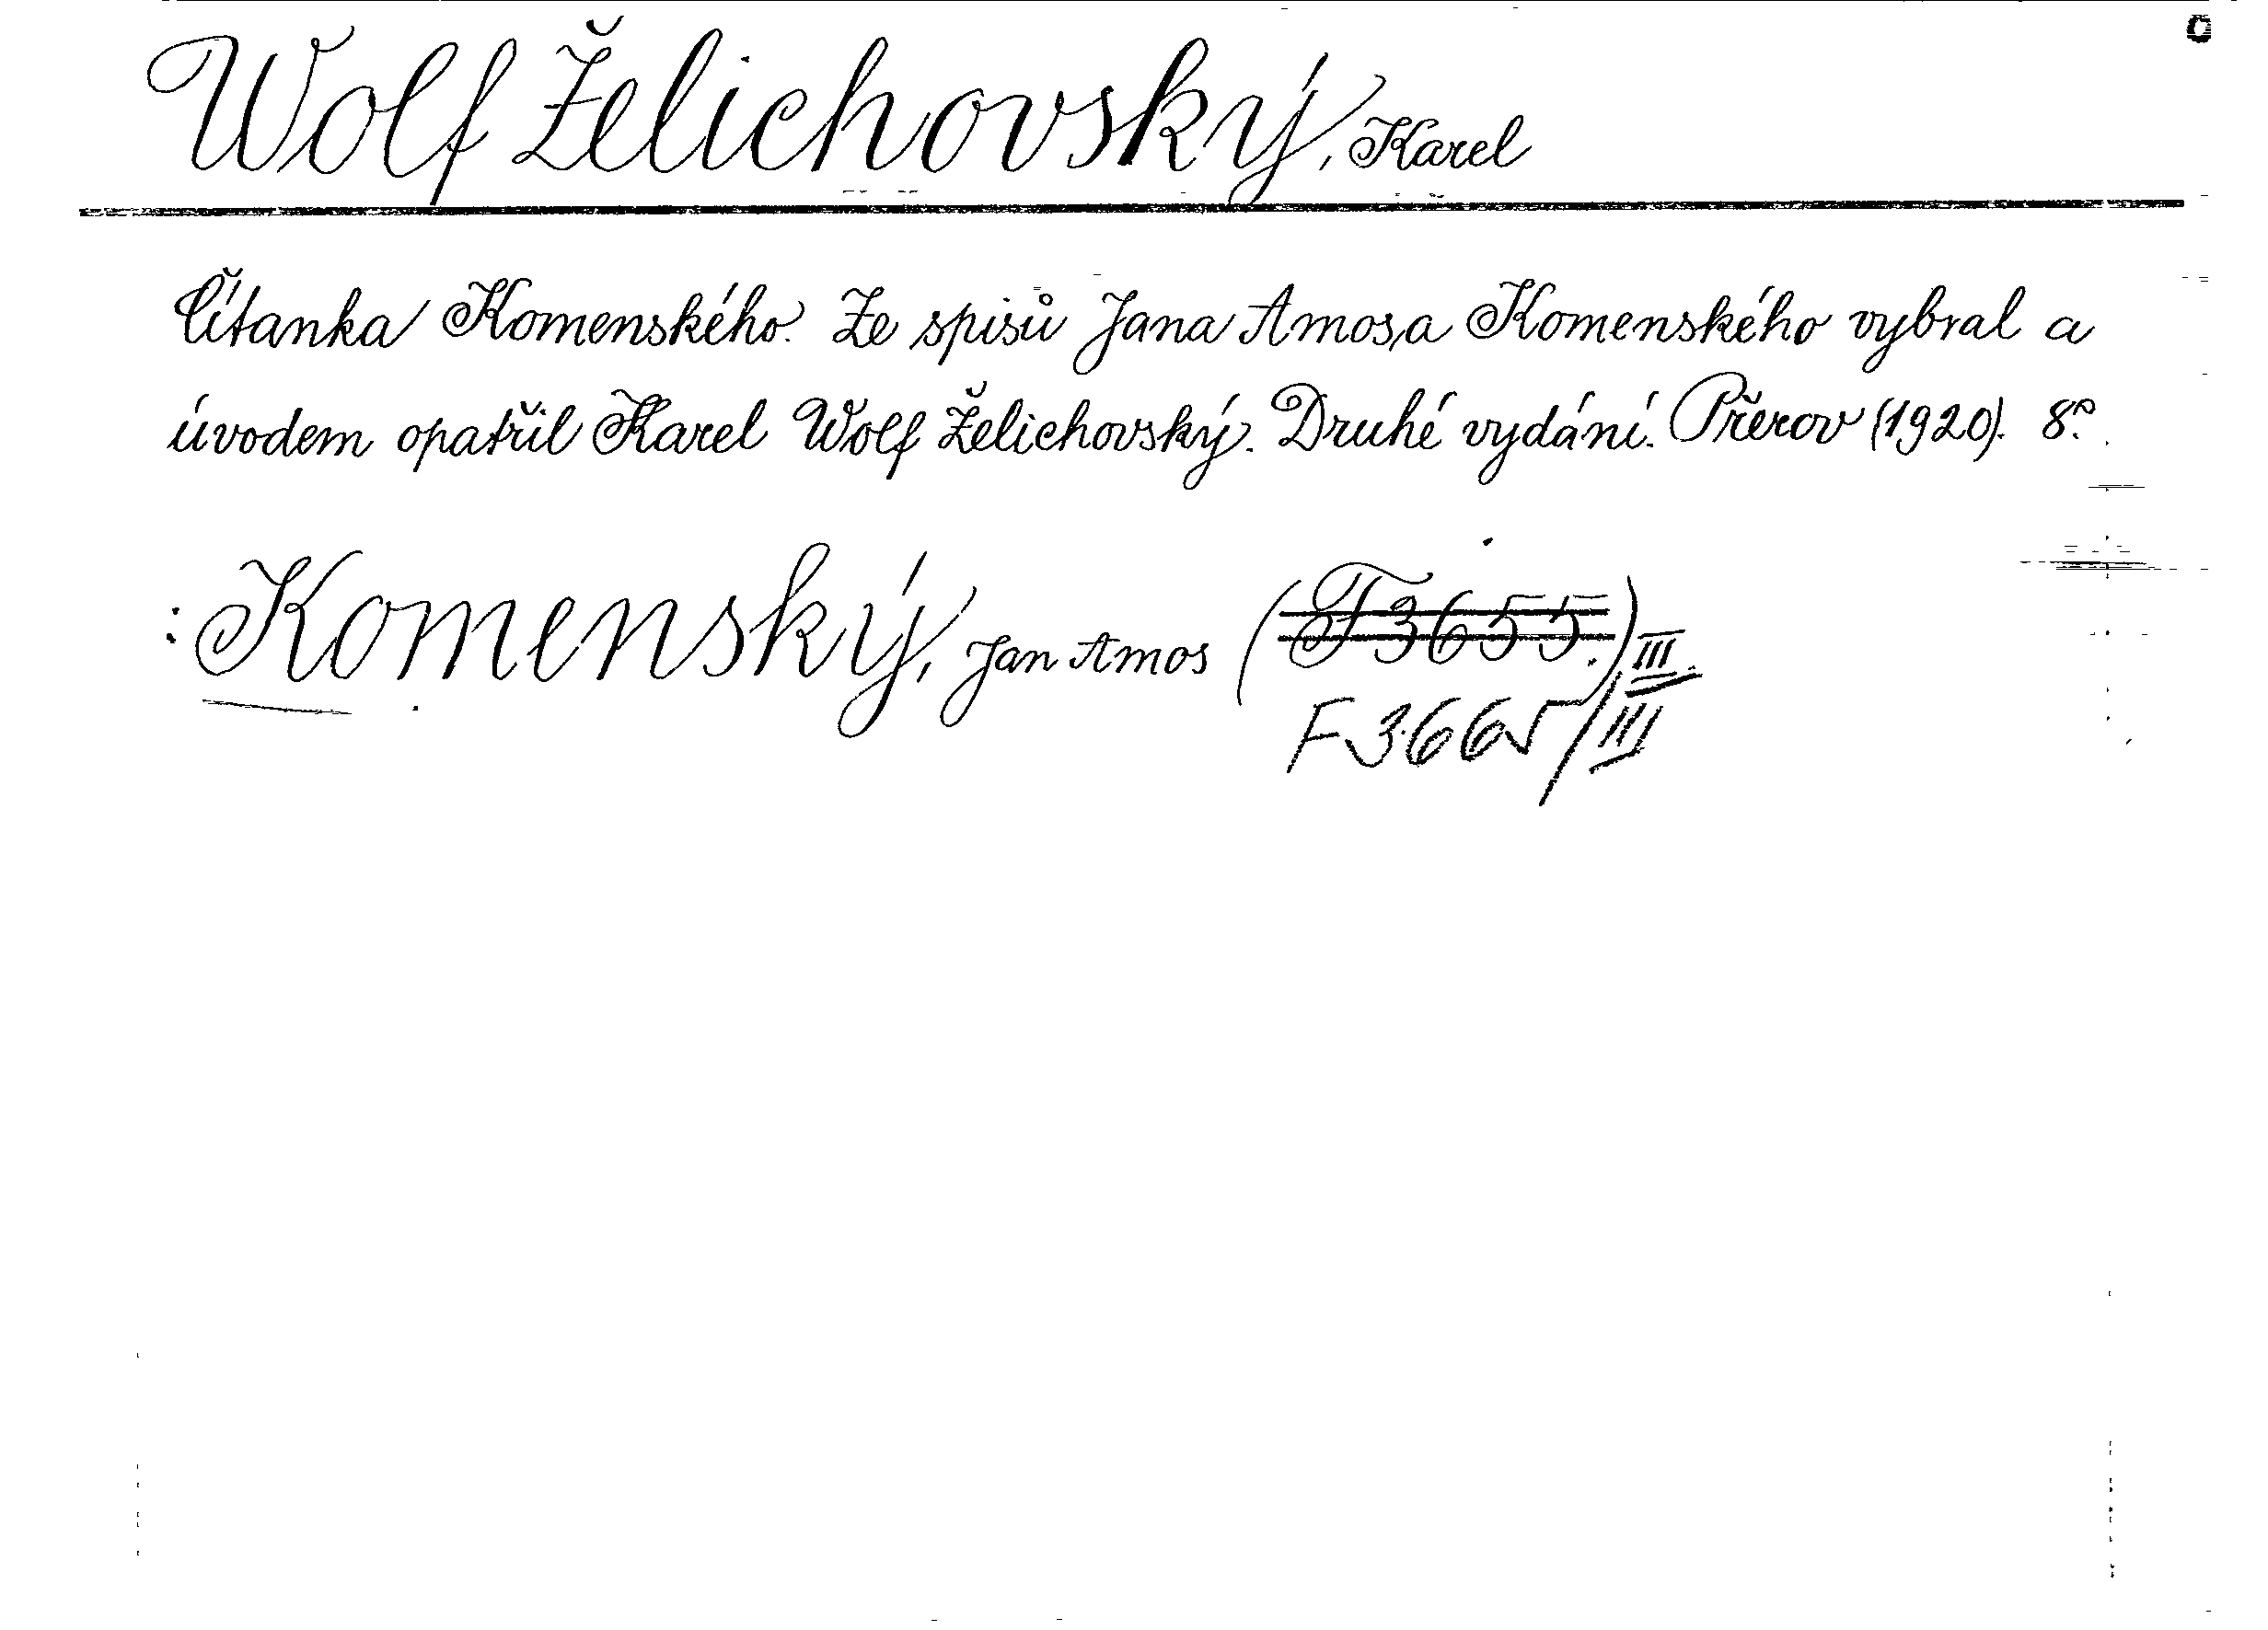 Wolf Želichovský, Karel
Čítanka Komenského. Ze spisů Jana Amosa Komenského vybral a
úvodem opatřil Karel Wolf Želichovský. Druhé vydání. Přerov (1920). 8º.
: Komenský, Jan Amos (F 3655.) III.
F 3665/III